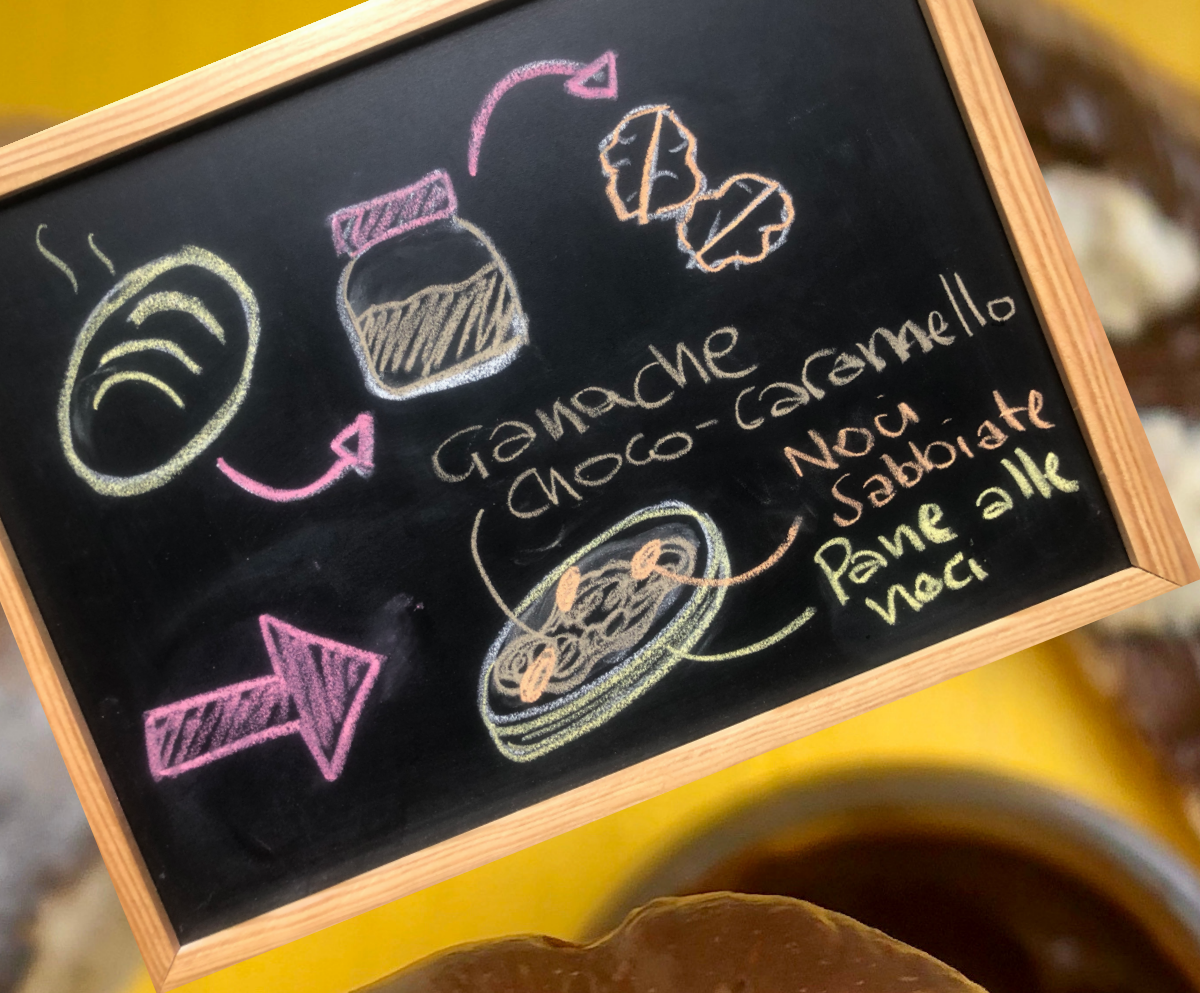 Ganache
choco-caramello
Noci
Sabbiate
Pane alle
noci